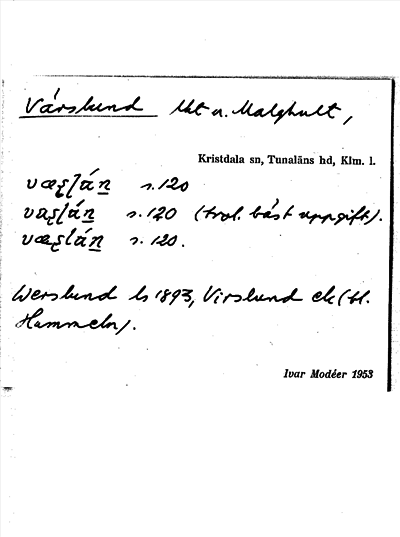 Vårslund lht u. Malghult,
Kristdala sn, Tunaläns hd, Klm. l.
s. 120
s. 120 (trol. bäst uppgift).
s. 120.
Werslund ls 1893, Virslund ek (bl.
Hammeln).
Ivar Modéer 1953